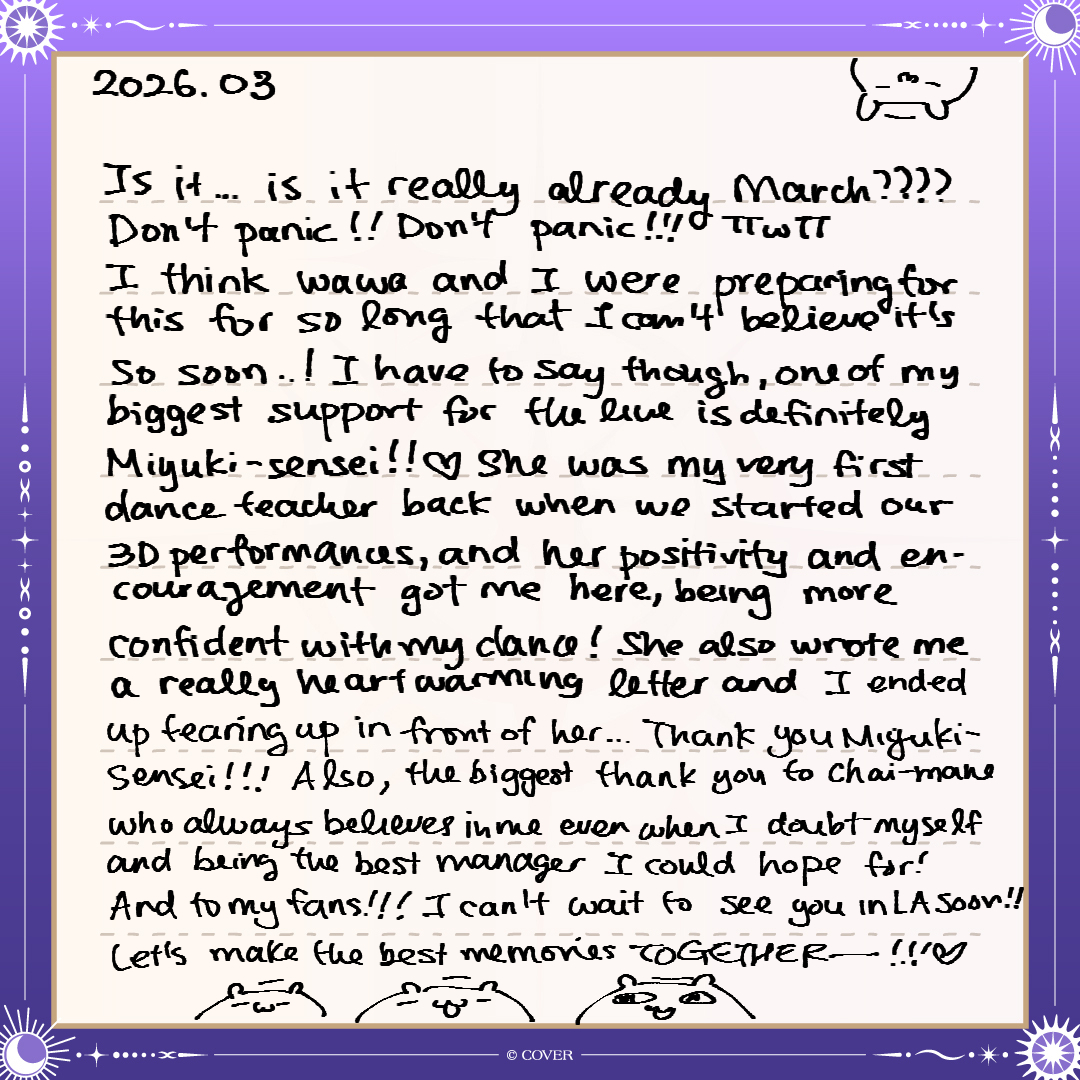 2026.03
Is it... is it really already March????
Don't panic!! Don't panic!!! TTwTT
I think wawa and I were preparing for
this for so long that I can't believe it's
so soon..! I have to say though, one of my
biggest support for the live is definitely
Miyuki-sensei!!♡ She was my very first
dance teacher back when we started our
3D performances, and her positivity and en-
couragement got me here, being more
confident with my dance! She also wrote me
a really heartwarming letter and I ended
up tearing up in front of her... Thank you Miyuki-
Sensei!!! Also, the biggest thank you to Chai-mane
who always believes in me even when I doubt myself
and being the best manager I could hope for!
And to my fans!!! I can't wait to see you in LA soon!!
Let's make the best memories TOGETHER—!!!♡
© COVER